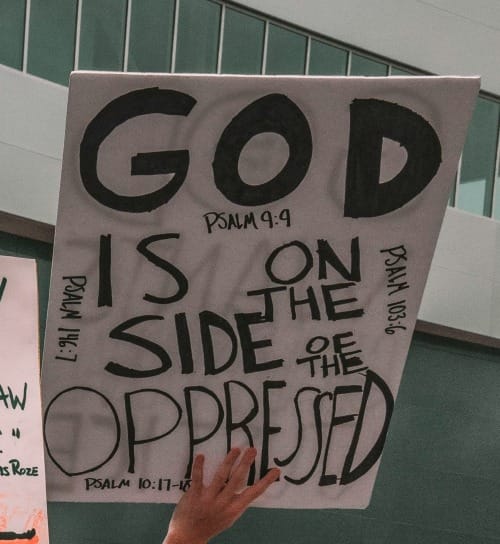 GOD
PSALM 9:9
IS ON
THE
SIDE OF
THE
OPPRESSED
PSALM 10:17-18
PSALM 146:7
PSALM 103:6
AW
"
ROZE